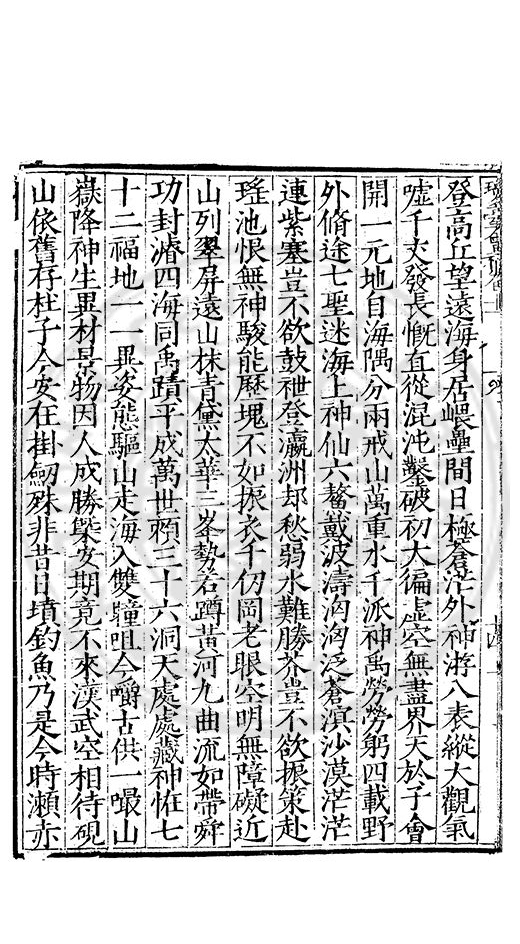 登高丘望遠海身居嵔壘間日極蒼茫外神游八表縱大觀氣
噓千丈發長慨直從混沌鑿破初大徧虛空無盡界天於子會
開一元地自海隅分兩戒山萬重水千派神禹勞勞躬四載野
外脩途七聖迷海上神仙六鰲戴波濤洶洶泛蒼溟沙漠茫茫
連紫塞豈不欲鼓枻登瀛洲却愁弱水難勝芥豈不欲振策赴
瑤池恨無神駿能歷塊不如振衣千仞岡老眼空明無障礙近
山列翠屏遠山抹青黛太華三峯勢若蹲黃河九曲流如帶舜
功封濬四海同禹蹟平成萬世賴三十六洞天處處藏神恠七
十二福地一一異姿態驅山走海入雙瞳咀今嚼古供一嘬山
嶽降神生異材景物因人成勝槩安期竟不來漢武空相待硯
山依舊存杜子今安在掛劒殊非昔日墳釣魚乃是今時瀬亦